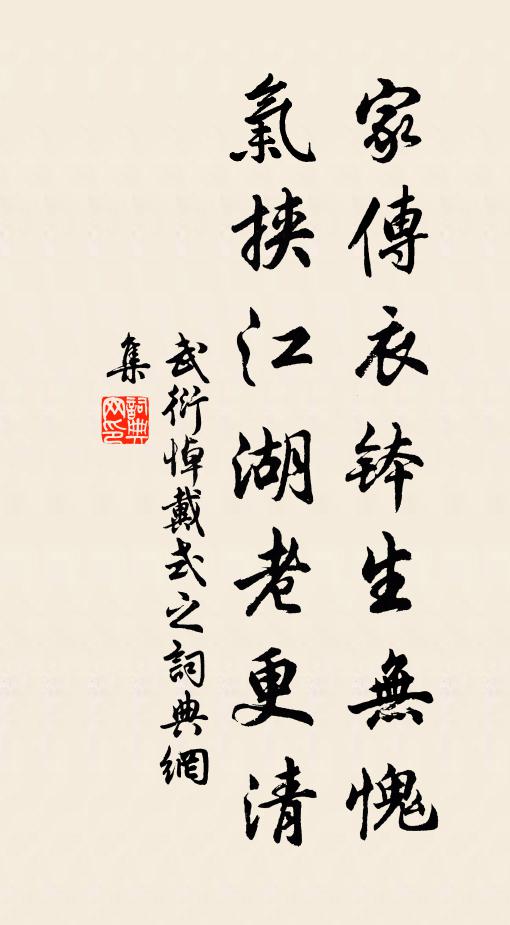 家傳衣鉢生無愧
氣挾江湖老更清
武衍悼戴式之詞典網
集
詞典網印